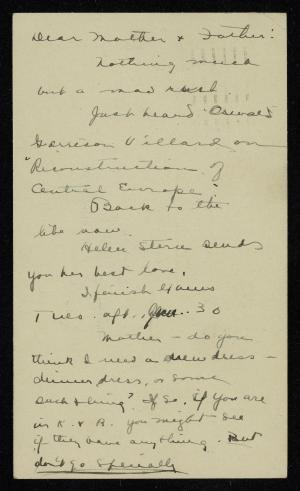 Dear Mother & Father:
Nothing much
but a mad rush.
Just heard Oswald
Garrison Villard on
"Reconstruction of
Central Europe".
Back to the
libe now.
Helen Stern sends
you her best love.
I finish Exams
Tues. aft., Jan. 30
Mother - do you
think I need a new dress -
dinner dress, or some
such thing? If So, if you are
in K. & R. you might see
if they have anything. But
don't go specially